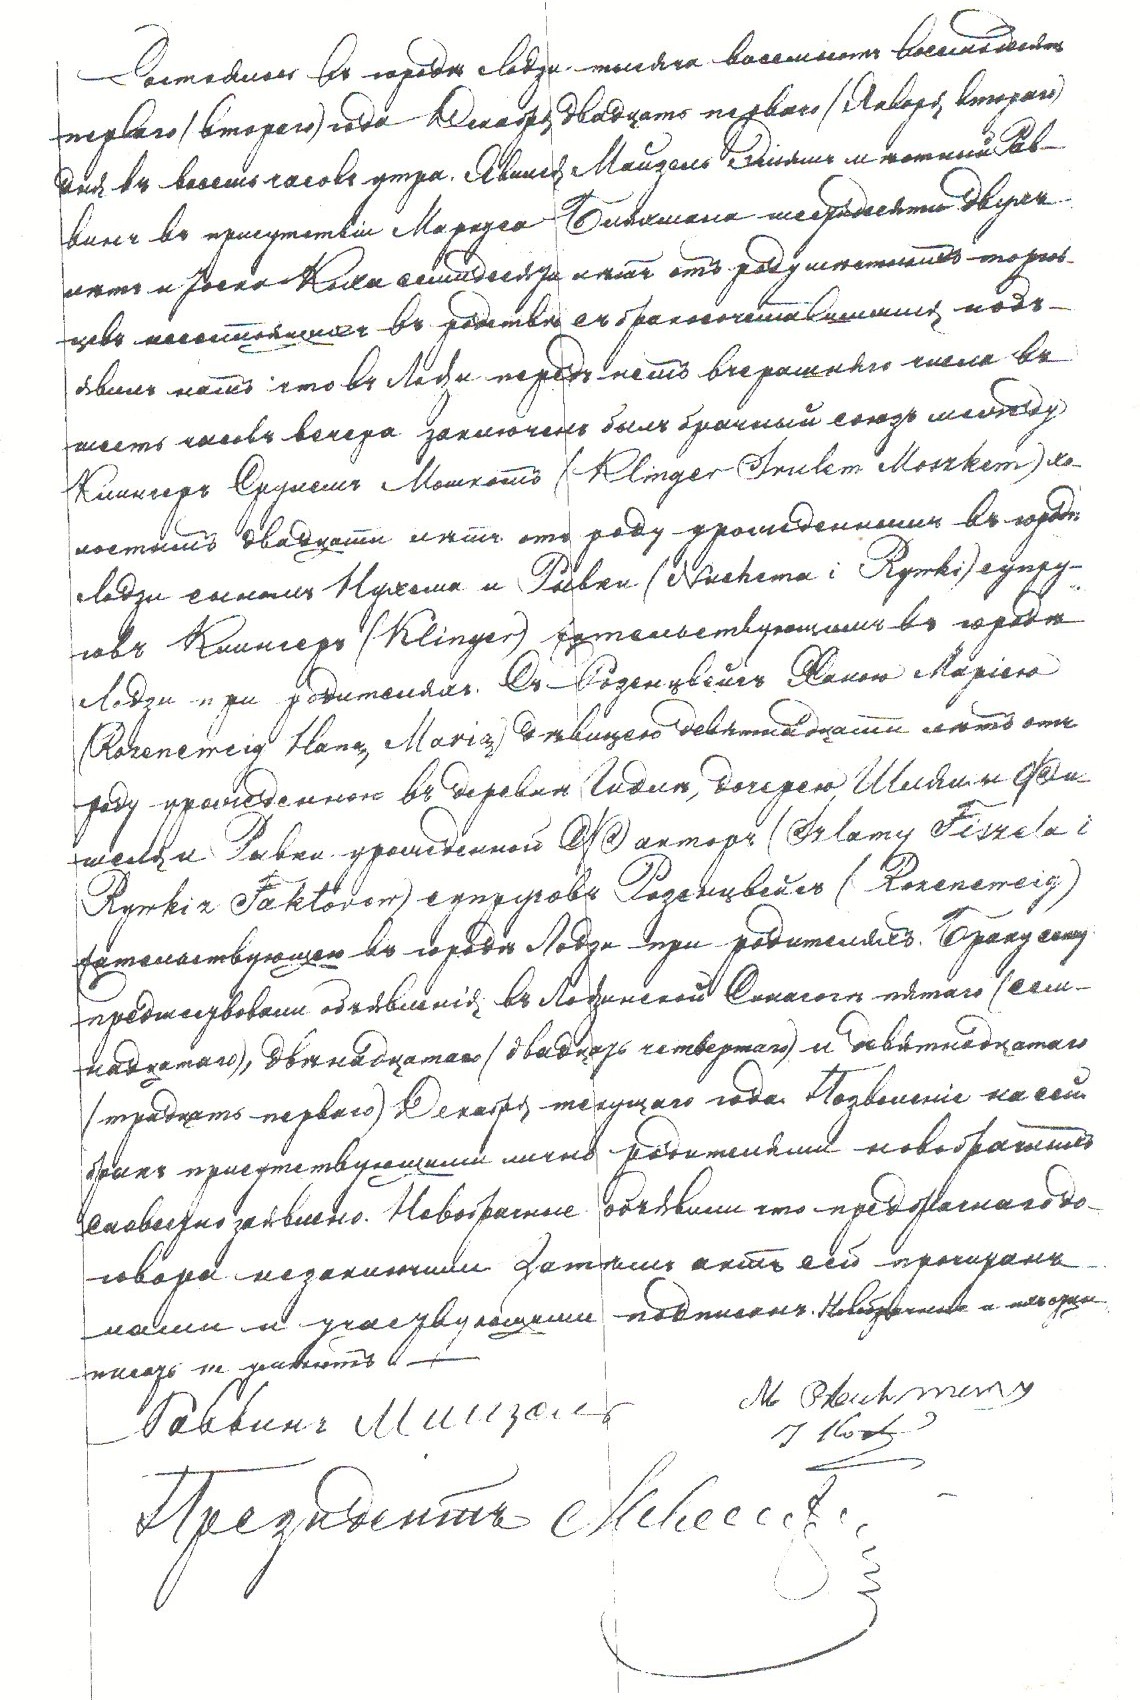 Состоялось въ городѣ Лодзи тысяча восемьсотъ восемьдесятъ
перваго (втораго) года Декабря двадцать перваго (Января втораго)
дня въ восемь часовъ утра. Явился Майзель Еліяшъ мѣстный Рав-
винъ въ присутствіи Мордка шестидесяти двухъ
лѣтъ и семидесяти лѣтъ отъ роду мѣстныхъ торгов-
цевъ несостоящихъ въ родствѣ съ бракосочетавшимися, объ-
явилъ намъ что въ Лодзи передъ нимъ вчерашняго числа въ
шесть часовъ вечера заключенъ былъ брачный союзъ между
Клингеръ Срулемъ Мошкомъ (Klinger Srulem Moszkem) хо-
лостымъ двадцати лѣтъ отъ роду урожденнымъ въ городѣ
Лодзи сыномъ Нухема и Ривки (Nuchema i Rywki) супру-
говъ Клингеръ (Klinger) жительствующимъ въ городѣ
Лодзи при родителяхъ. Съ Розенцвейгъ Ханою Маріею
(Rozencweig Haną Marią) дѣвицею девятнадцати лѣтъ отъ
роду урожденною въ деревни дочерью Шлямы Фи-
шеля и Ривки урожденной Факторъ (Szlamy Fiszela i
Rywki z Faktorow) супруговъ Розенцвейгъ (Rozencweig)
жительствующею въ городѣ Лодзи при родителяхъ. Браку сему
предшествовали объявленія въ Лодзинской Синагогѣ пятаго (сем-
надцатаго), двѣнадцатаго (двадцать четвертаго) и девятнадцатаго
(тридцать перваго) Декабря текущаго года. Позволеніе на сей
бракъ присутствующими лично родителями новобрачныхъ
словесно заявлено. Новобрачные объявили что предбрачнаго до-
говора незаключили. Затѣмъ актъ сей прочитанъ
нами и участвующими подписанъ. Новобрачные и
писать не умѣютъ.
Раввинъ Майзель
Президентъ